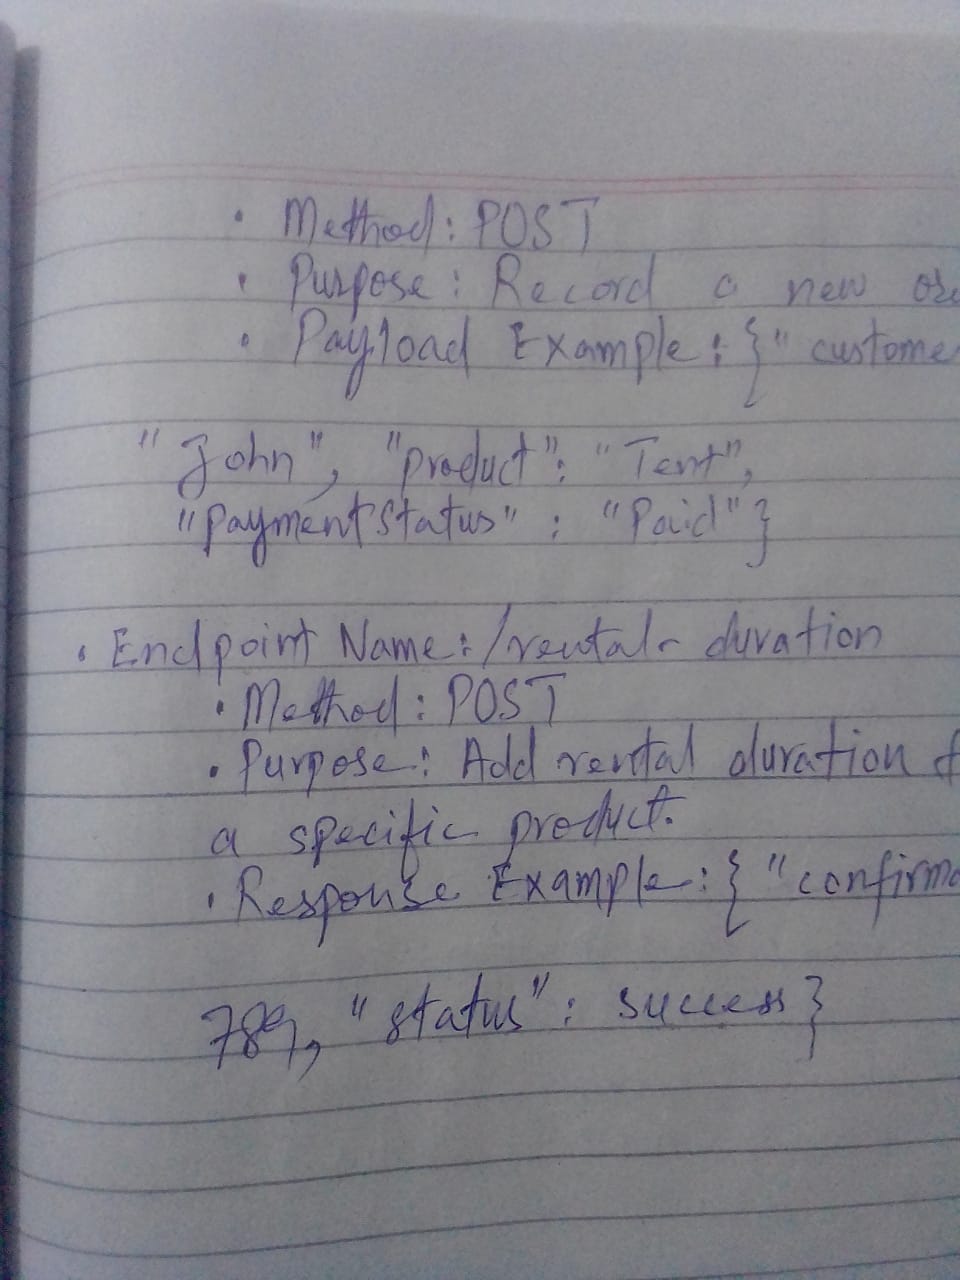 · Method: POST
· Purpose: Record a new
· Payload Example: {"
"John", "product": "Tent",
"Payment Status" : "Paid"}
· Endpoint Name: /rental-duration
· Method: POST
· Purpose: Add rental duration
a specific product.
· Response Example: {"
789, "status": success}